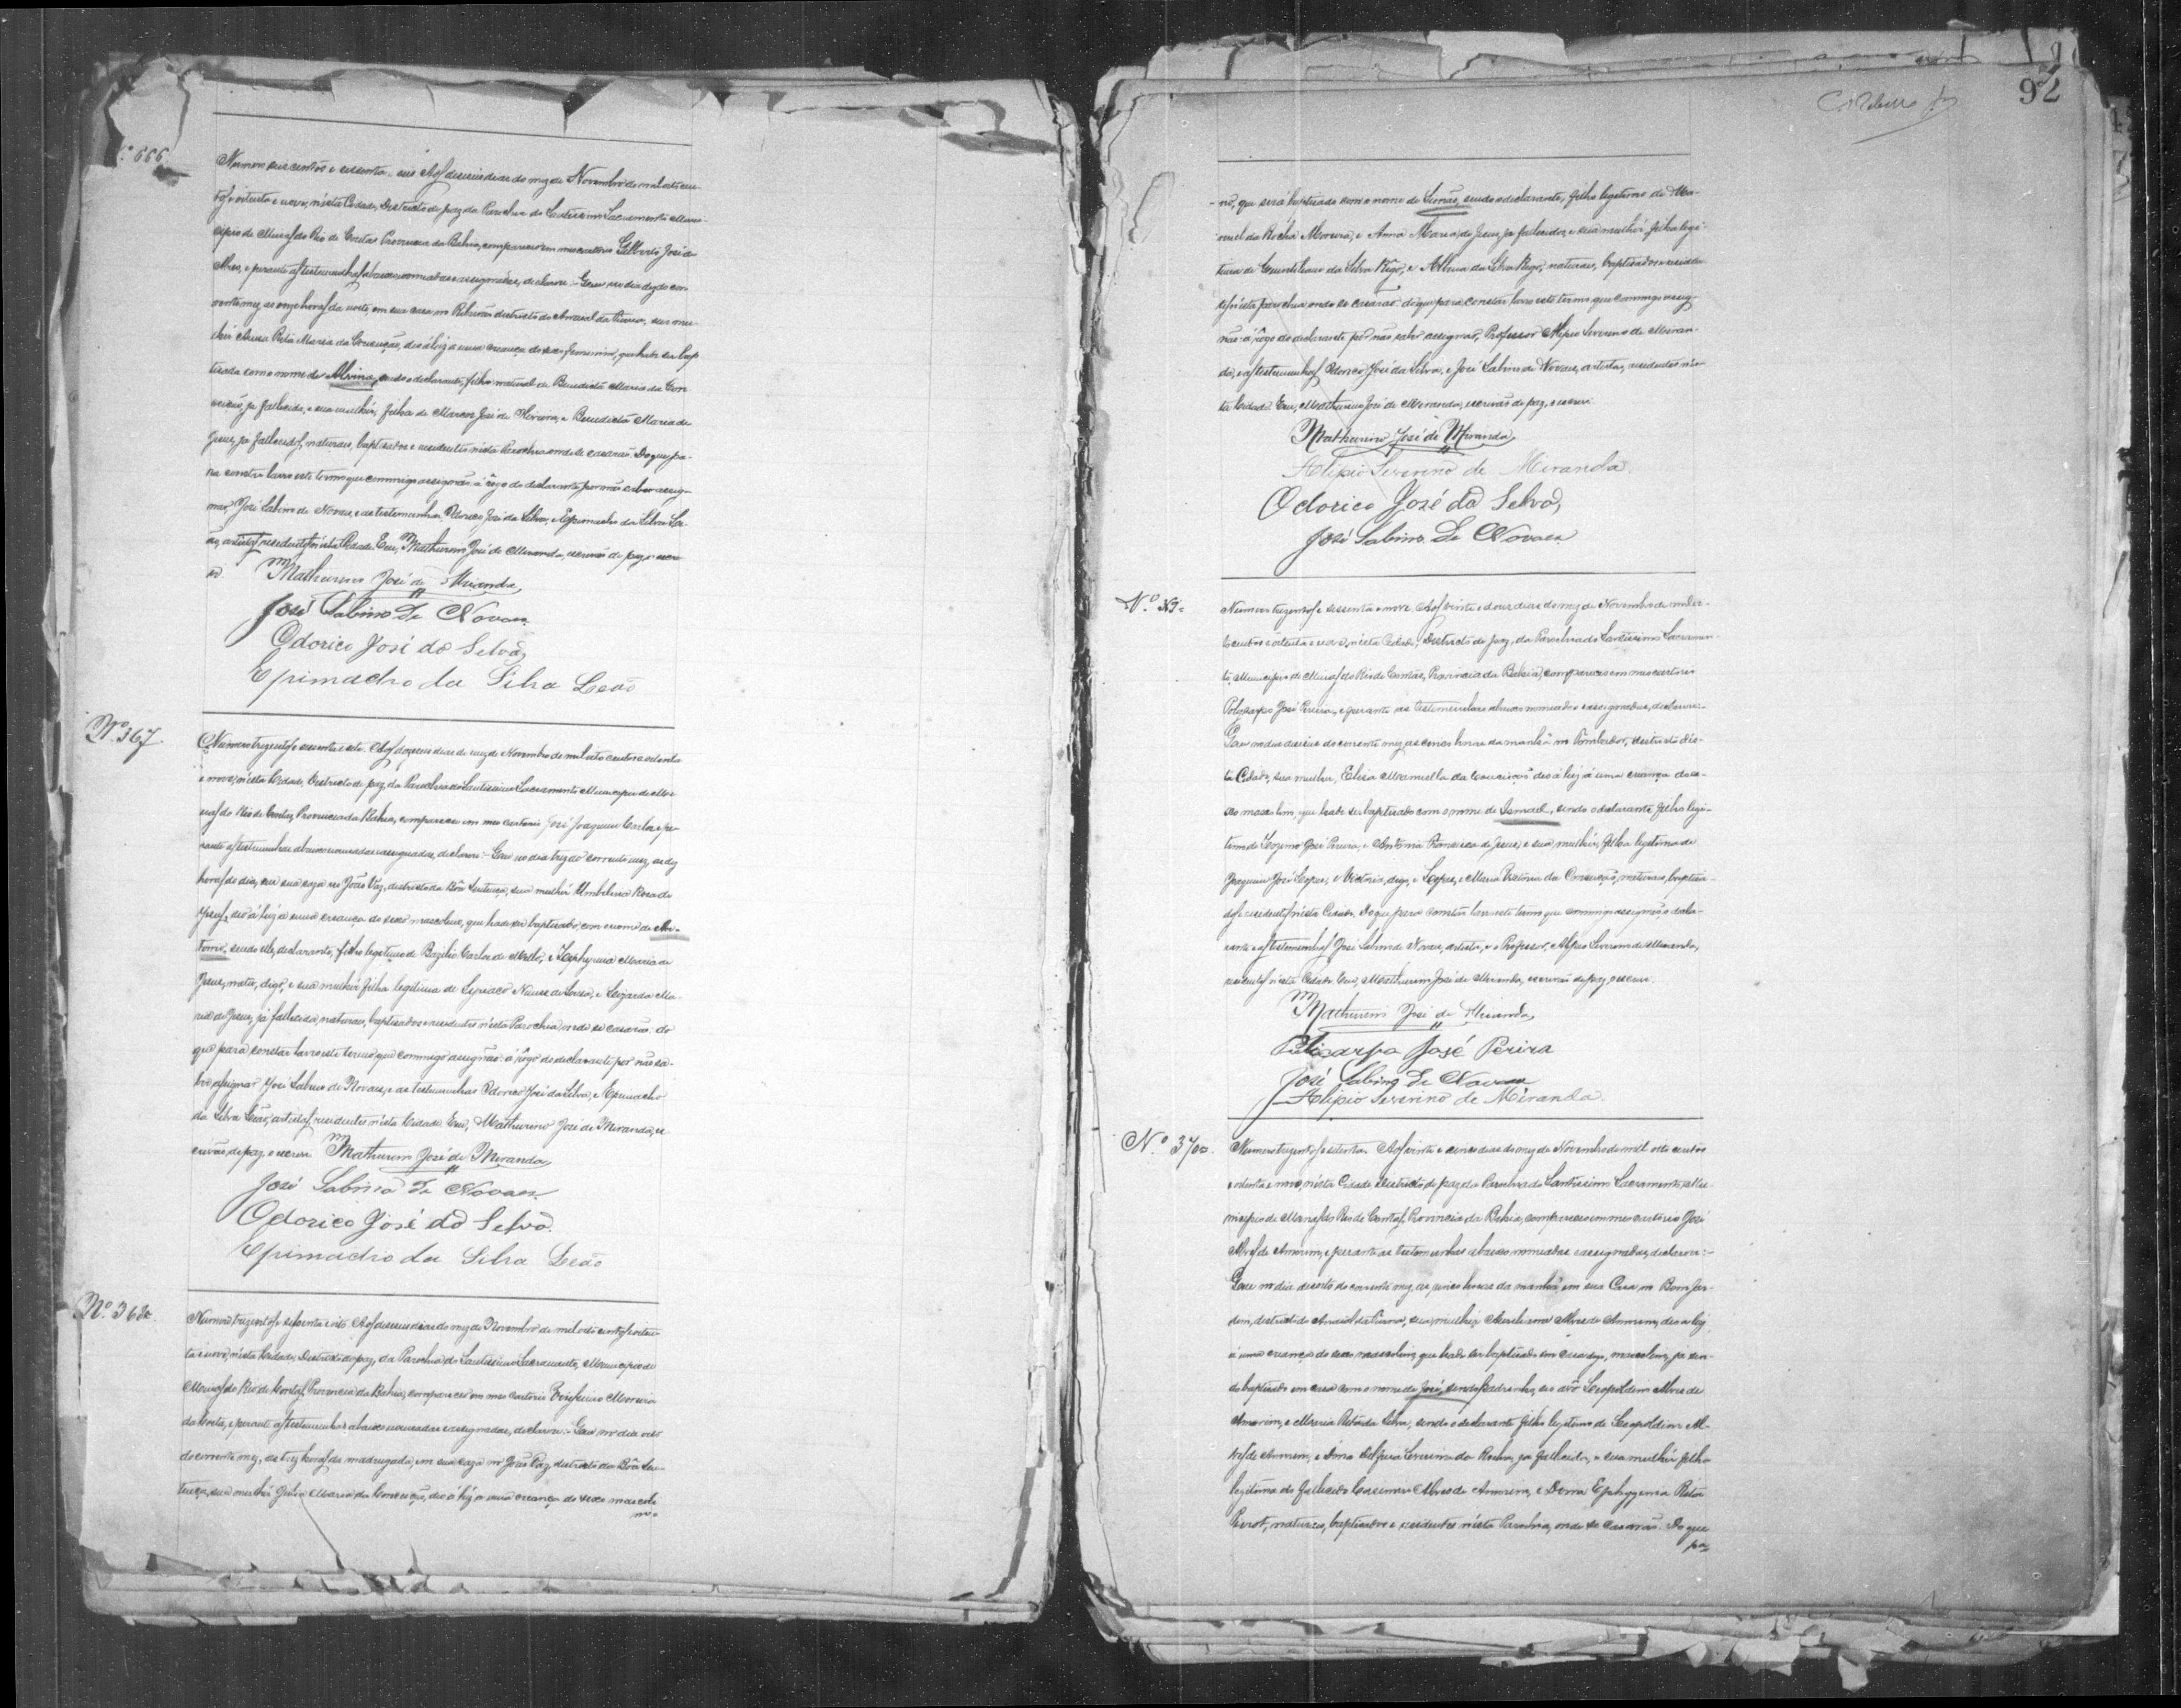 N.º 666.
Numero seis centos e sessenta e seis Aos deseseis dias do mez de Novembro de mil oito cen-
tos e oitenta e nove, nésta Cidade, Districto de paz da Parochia do Santissimo Sacramento Muni-
cipio de Minas do Rio de Contas Provincia da Bahia, compareceu em meu cartorio Gilberto José
Alves, e perante as testemunhas abaixo nomeadas e assignadas, declarou:- Que no dia dez do cor-
rente mez, as onze horas da noite em sua casa no Ribeirão districto do Arraial da Furna, sua mu-
lher Rita Maria da Conceição, deo á luz a uma creança do sexo femenino, que hade ser bap
tisada com o nome de Alvina, sendo o declarante, filho natural de Benedicta Maria da Con
ceição, ja fallecida, e sua mulher, filha de Marcos José de Oliveira, e Benedicta Maria de
Jesus, ja fallecidos, naturaes, baptisados e residentes nésta Parochia onde se casarão. Do que pa-
ra constar lavro este termo que commigo assignão á rogo do declarante por não saber assig-
nar, José Sabino de Novaes, e as testemunhas Odorico José da Silva, e Epimacho da Silva Le-
ão, artistas residentes nésta Cidade. Eu, Mathurino José de Miranda, escrivão de paz o escre
vi. Mathurino José de Miranda
José Sabino de Novaes
Odorico José da Silva
Epimacho da Silva Leão
Nº 367.
Numero trezentos e sessenta e sete. Aos dezeseis dias do mez de Novembro de mil oito centos e oitenta
e nove, nésta Cidade, Districto de paz, da Parochia do Santissimo Sacramento Municipio de Mi-
nas do Rio de Contas, Provincia da Bahia, compareceu em meu cartorio José Joaquim Carlos e pe-
rante as testemunhas abaixo nomeadas e assignadas, declarou:- Que no dia trez do corrente mez, as dez
horas do dia, em sua caza no João Vaz, districto da Bôa Sentença, sua mulher Umbelina Rosa de
Jesus, deo á luz a uma creança do sexo masculino, que hade ser baptisado, com o nome de An-
tonio, sendo elle, declarante, filho legitimo de Bazilio Carlos de Mello, e Zephyrina Maria de
Jesus, digo, e sua mulher filha legitima de Nunes de Souza, e Leogarda Ma-
ria de Jesus, já fallecida, naturaes, baptisados e residentes nésta Parochia, onde se casarão. do
que para constar lavro este termo, que commigo assignão á rôgo do declarante por não sa-
ber assignar José Sabino de Novaes, e as testemunhas Odorico José da Silva, e Epimacho
da Silva Leão, artistas, residentes nésta Cidade. Eu, Mathurino José de Miranda, es
crivão, de paz, o escrevi Mathurino José de Miranda
José Sabino de Novaes
Odorico José da Silva
Epimacho da Silva Leão
Nº 368
Numero trezentos e sessenta e oito Aos deseseis dias do mez de Novembro de mil oito centos e oiten-
ta e nove, nésta Cidade, Districto de paz, da Parochia do Santissimo Sacramento, Municipio de
Minas do Rio de Contas, Provincia da Bahia, compareceu em meu cartorio Moreira
da Costa, e perante as testemunhas abaixo nomeadas e assignadas, declarou:- Que no dia oito
do corrente mez, as trez horas da madrugada, em sua caza no João Vaz, districto da Bôa Sen-
tença, sua mulher Julia Maria da Conceição, deo á luz a uma creança do sexo masculi
no=
92
-no, que será baptisado com o nome de Simão, sendo o declarante, filho legitimo de Ma-
noel da Rocha Moreira, e Anna Maria de Jesus, ja fallecidos, e sua mulher, filha legi-
tima de Quintiliano da Silva Rêgo, e Albina da Silva Rego, naturaes, baptisados e residen
tes nésta parochia onde se casarão: do que para constar lavro este termo, que commigo assig-
não á rôgo do declarante por não saber assignar, Professor Alipio Severino de Miran-
da, e as testemunhas, Odorico José da Silva, e José Sabino de Novaes, artistas, residentes nés-
ta Cidade. Eu, Mathurino José de Miranda, escrivão de paz, o escrevi.
Mathurino José de Miranda
Alipio Severino de Miranda
Odorico José da Silva
José Sabino de Novaes
N.º
Numero trezentos e sessenta e nove. Aos vinte e dous dias do mez de Novembro de mil oi-
to centos e oitenta e nove, nésta Cidade, Districto de paz, da Parochia do Santissimo Sacramen-
to, Municipio de Minas do Rio de Contas, Provincia da Bahia, compareceu em meu cartorio
Policarpo José Pereira, e perante as testemunhas abaixo nomeadas e assignadas, declarou:-
Que no dia deseseis do corrente mez, as cinco horas da manhã no Tombador, districto dés-
ta Cidade, sua mulher, Elisa Manuella da Conceição deo á luz á uma creança do se-
xo masculino, que hade ser baptisado com o nome de Ismael, sendo o declarante filho legi-
timo de Zozimo José Pereira, e Antonia Francisca de Jesus, e sua mulher, filha legitima de
Joaquim José Lopes, e Victoria, digo, e Lopes, e Maria Victoria da Conceição, naturaes, baptisa-
dos e residentes nésta Cidade. Do que para constar lavro este termo que commigo assignão o decla-
rante e as testemunhas José Sabino de Novaes, artista, e o Professor, Alipio Severino de Miranda,
residentes nésta Cidade. Eu, Mathurino José de Miranda, escrivão de paz, o escrevi.
Mathurino José de Miranda
Pulicarpo José Perira
José Sabino de Novaes
Alipio Severino de Miranda.
N.º 370
Numero trezentos e setenta. Aos vinte e cinco dias do mez de Novembro de mil oito centos
e oitenta e nove, nésta Cidade Districto de paz, da Parochia do Santissimo Sacramento, Mu-
nicipio de Minas do Rio de Contas, Provincia da Bahia, compareceu em meu cartorio José
Alves de Amorim, e perante as testemunhas abaixo nomeadas e assignadas, declarou:-
Que no dia desoito do corrente mez, as cinco horas da manhã em sua Casa no Bom Jar-
dim, districto do Arraial da Furna, sua mulher, Aureliana Alves de Amorim, deo a luz
á uma creança do sexo masculino, que hade ser baptisado em casa digo, masculino, ja sen-
do baptisado em casa com o nome de José, sendo padrinhos, seo avô Leopoldino Alves de
Amorim, e Maria Rita da Silva, sendo o declarante filho legitimo de Leopoldino Al-
ves de Amorim, e Anna Severina da Rocha, ja fallecida, e sua mulher filha
legitima do fallecido Casimiro Alves de Amorim, e Dona Ephygenia Rita
naturaes, baptisados e residentes nésta Parochia, onde se casarão. Do que
pa=